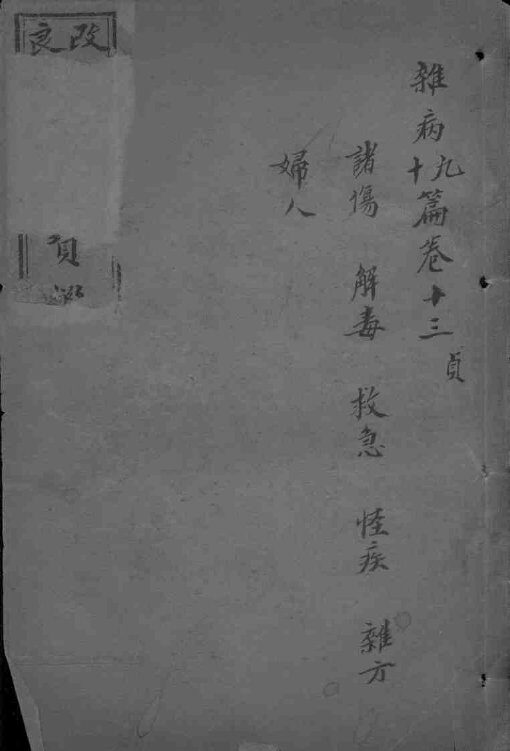 雜病九
十篇卷十三
貞
諸傷 解毒 救急 怪疾 雜方
婦人
改良
貢